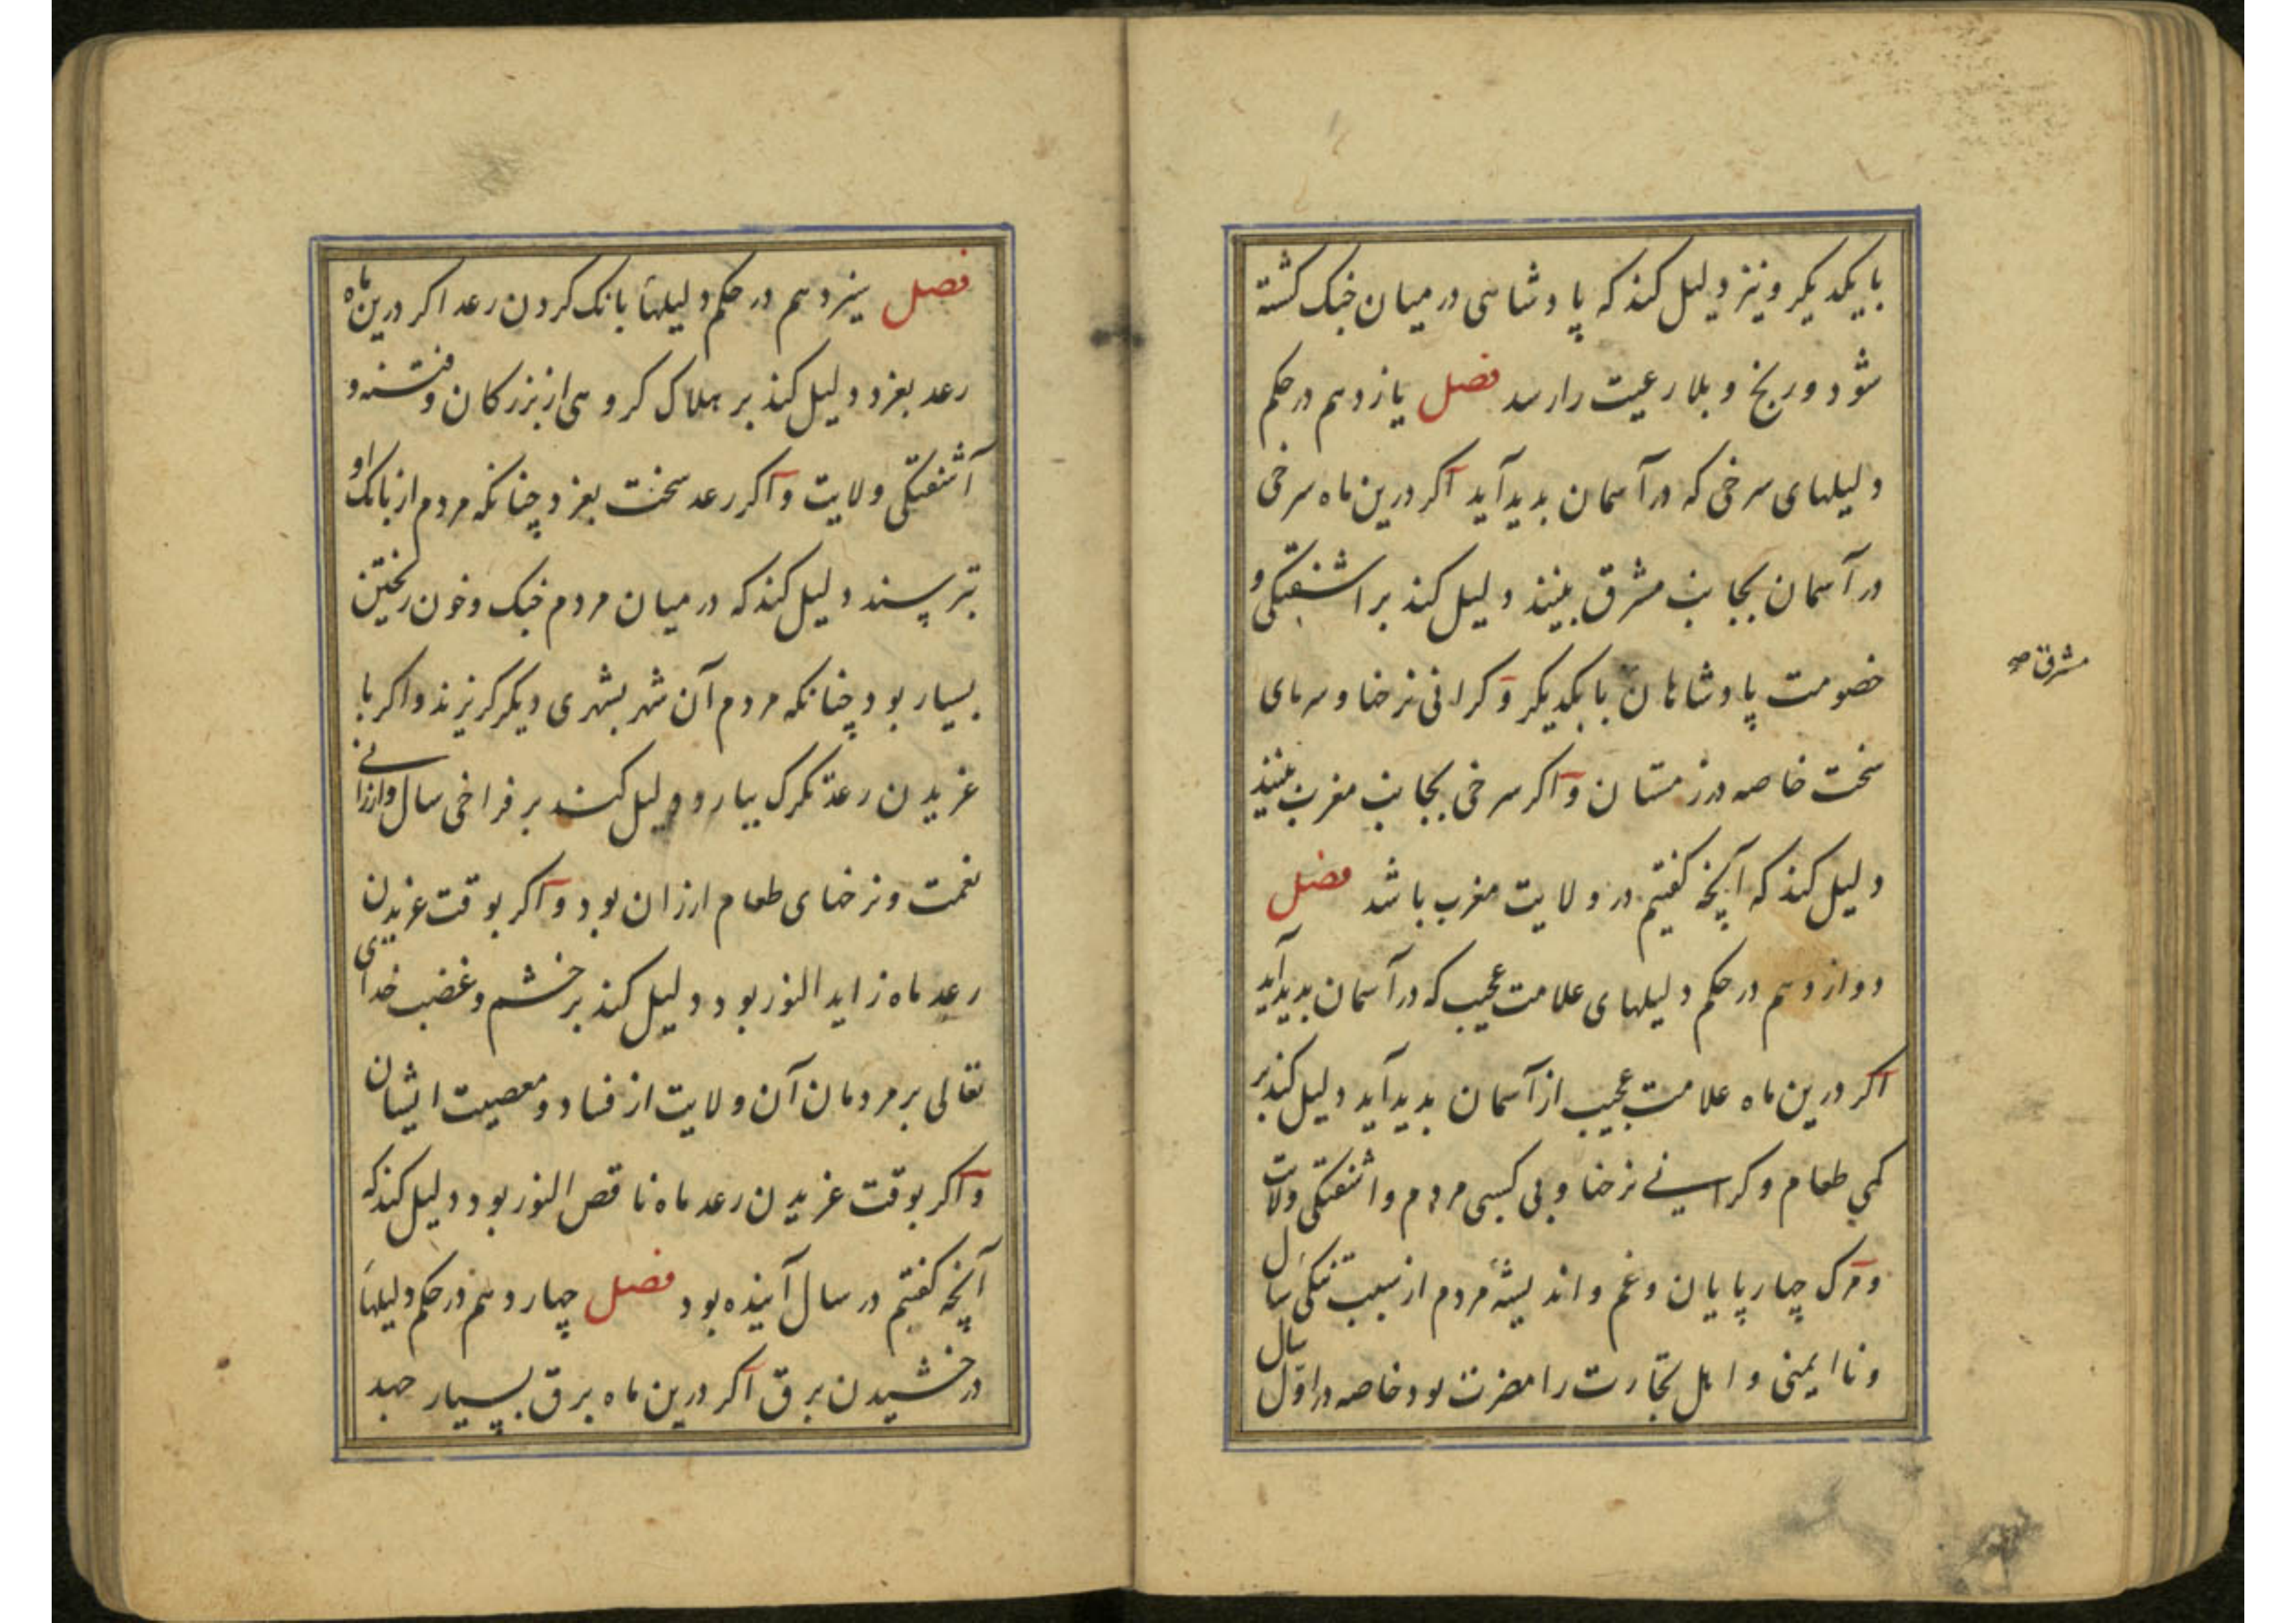 با یکدیکر و نیز دلیل کند که پادشاهی در میان جنک کشته
شود و رنج و بلا رعیت را رسد فصل یازدهم در حکم
دلیلهای سرخی که در آسمان بدید آید اکر درین ماه سرخی
در آسمان بجانب مشرق بینند دلیل کند بر اشفتکی و
خصومت پادشاهان با یکدیکر و کرانی نرخها و سرمای
سخت خاصه در زمستان و اکر سرخی بجانب مغرب بینند
دلیل کند که آنچه کفتیم در ولایت مغرب باشد فصل
دوازدهم در حکم دلیلهای علامت عجیب که در آسمان بدید آید
اکر درین ماه علامت عجیب از آسمان بدید آید دلیل کند بر
کمی طعام و کرانی نرخها و بی کسبی مردم و اشفتکی ولایت
و مرک چهارپایان و غم و اندیشهٔ مردم از سبب تنکی سال
و نا ایمنی و اهل تجارت را مضرت بود خاصه در اول سال
مشرق صح
فصل سیزدهم در حکم دلیلهاَ بانک کردن رعد اکر درین ماه
رعد بغرد دلیل کند بر هلاک کروهی از بزرکان و فتنه و
آشفتکی ولایت و اکر رعد سخت بغرد چنانکه مردم از بانک او
بترسند دلیل کند که در میان مردم جنک و خون ریختن
بسیار بود چنانکه مردم آن شهر بشهری دیکر کریزند و اکر با
غریدن رعد تکرک بیارد دلیل کند بر فراخی سال و ارزانی
نعمت و نرخهای طعام ارزان بود و اکر بوقت غریدن
رعد ماه زاید النور بود دلیل کند بر خشم و غضب خدای
تعالی بر مردمان آن ولایت از فساد و معصیت ایشان
و اکر بوقت غریدن رعد ماه ناقص النور بود دلیل کند که
آنچه کفتیم در سال آینده بود فصل چهاردهم در حکم دلیلهاَ
درخشیدن برق اکر درین ماه برق بسیار جهد